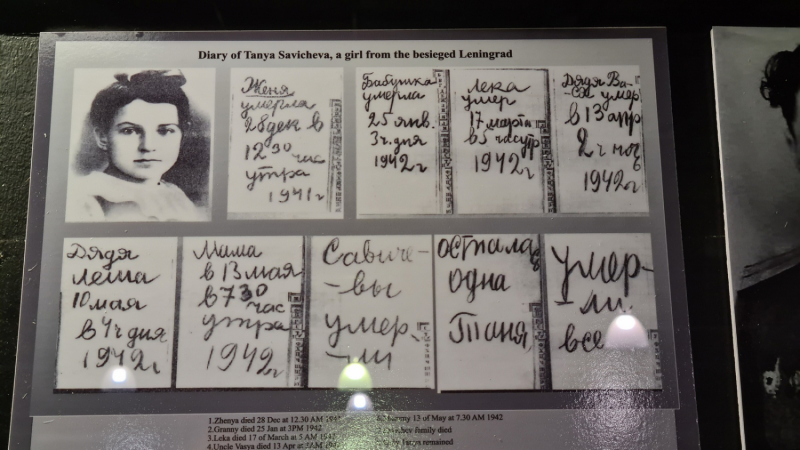 Diary of Tanya Savicheva, a girl from the besieged Leningrad
Женя
умерла
28 дек в
12 30 час
утра
1941 г
Бабушка
умерла
25 янв.
3 ч. дня
1942 г
Лека
умер
17 марта
в 5 час утр
1942 г
Дядя Ва-
ся умер
в 13 апр
2 ч ноч
1942 г
Дядя
Леша
10 мая
в 4 ч дня
1942 г
Мама
в 13 мая
в 7 30
час
утра
1942 г
Савиче-
-вы
умер-
-ли
осталась
одна
Таня
умер-
ли
все
1.Zhenya died 28 Dec at 12.30 AM
2.Granny died 25 Jan at 3PM 1942
3.Leka died 17 of March at 5 AM 1942
4.Uncle Vasya died 13 Apr at
13 of May at 7.30 AM 1942
family died
remained